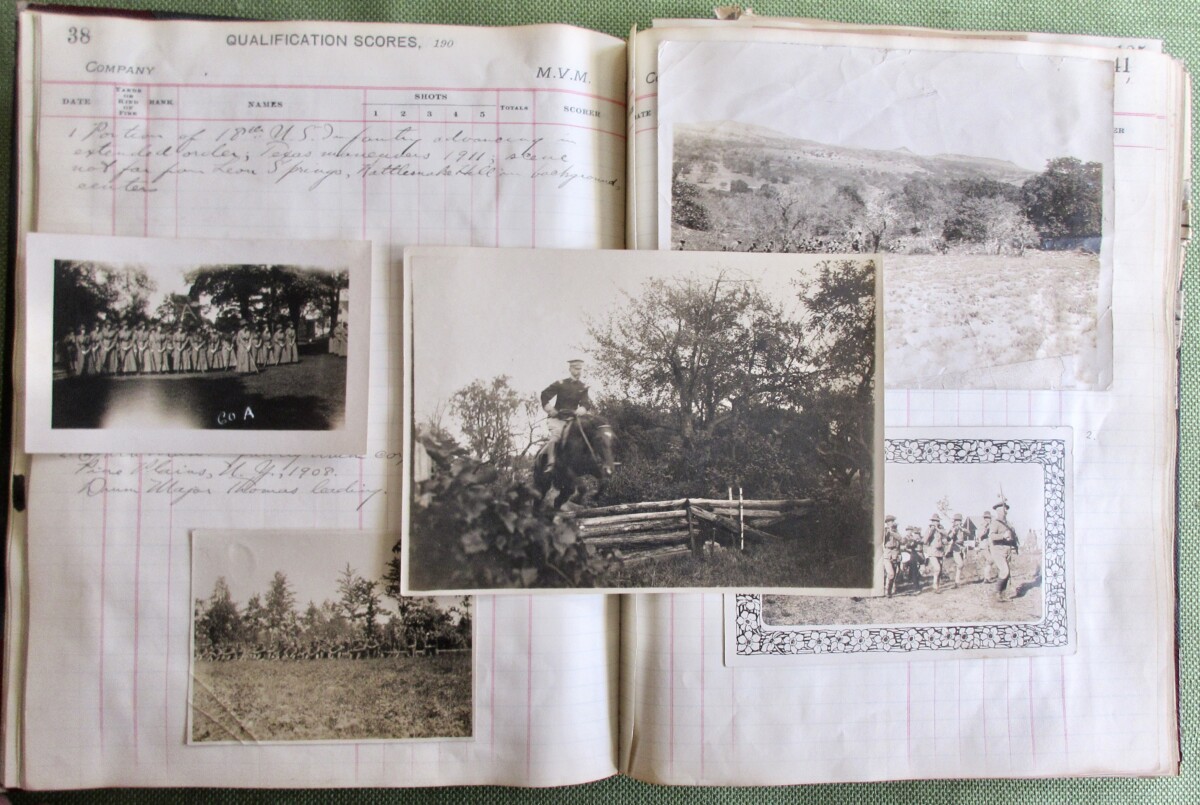 38
QUALIFICATION SCORES, 190
COMPANY
M.V.M.
DATE
YARDS OR KIND OF FIRE
RANK
NAMES
SHOTS
1 2 3 4 5
TOTALS
SCORER
1 Portion of 18th U.S. Infantry advancing in
extended order; Texas maneuvers 1911; scene
not far from Leon Springs, Rattlesnake Hill in background,
center
Co A
Pine Plains, N.Y., 1908.
Drum Major Thomas leading.
41
2.